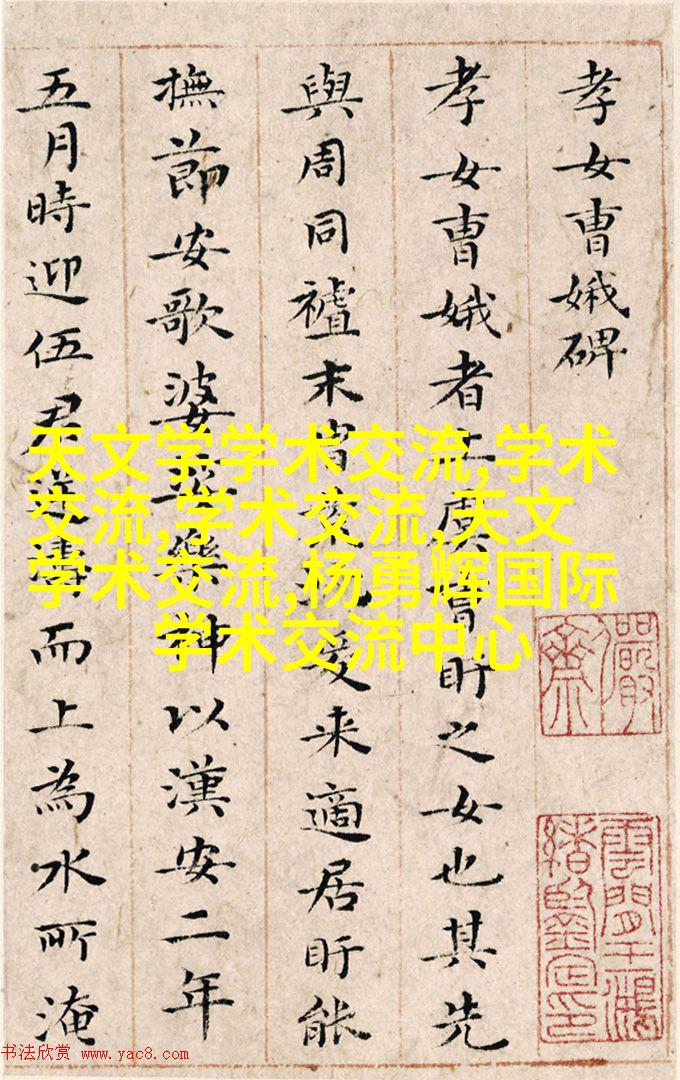 孝女曹娥碑
孝女曹娥者上虞曹盱之女也其先
與周同禮末胄爰来適居盱能
撫節安歌婆娑樂神以漢安二年
五月時迎伍君逆濤而上為水所淹
天文学学术交流,学术
交流,学术交流,天文
学术交流,杨勇辉国际
学术交流中心
雲間王鴻
緒鑒定印
书法欣赏 www.yac8.com